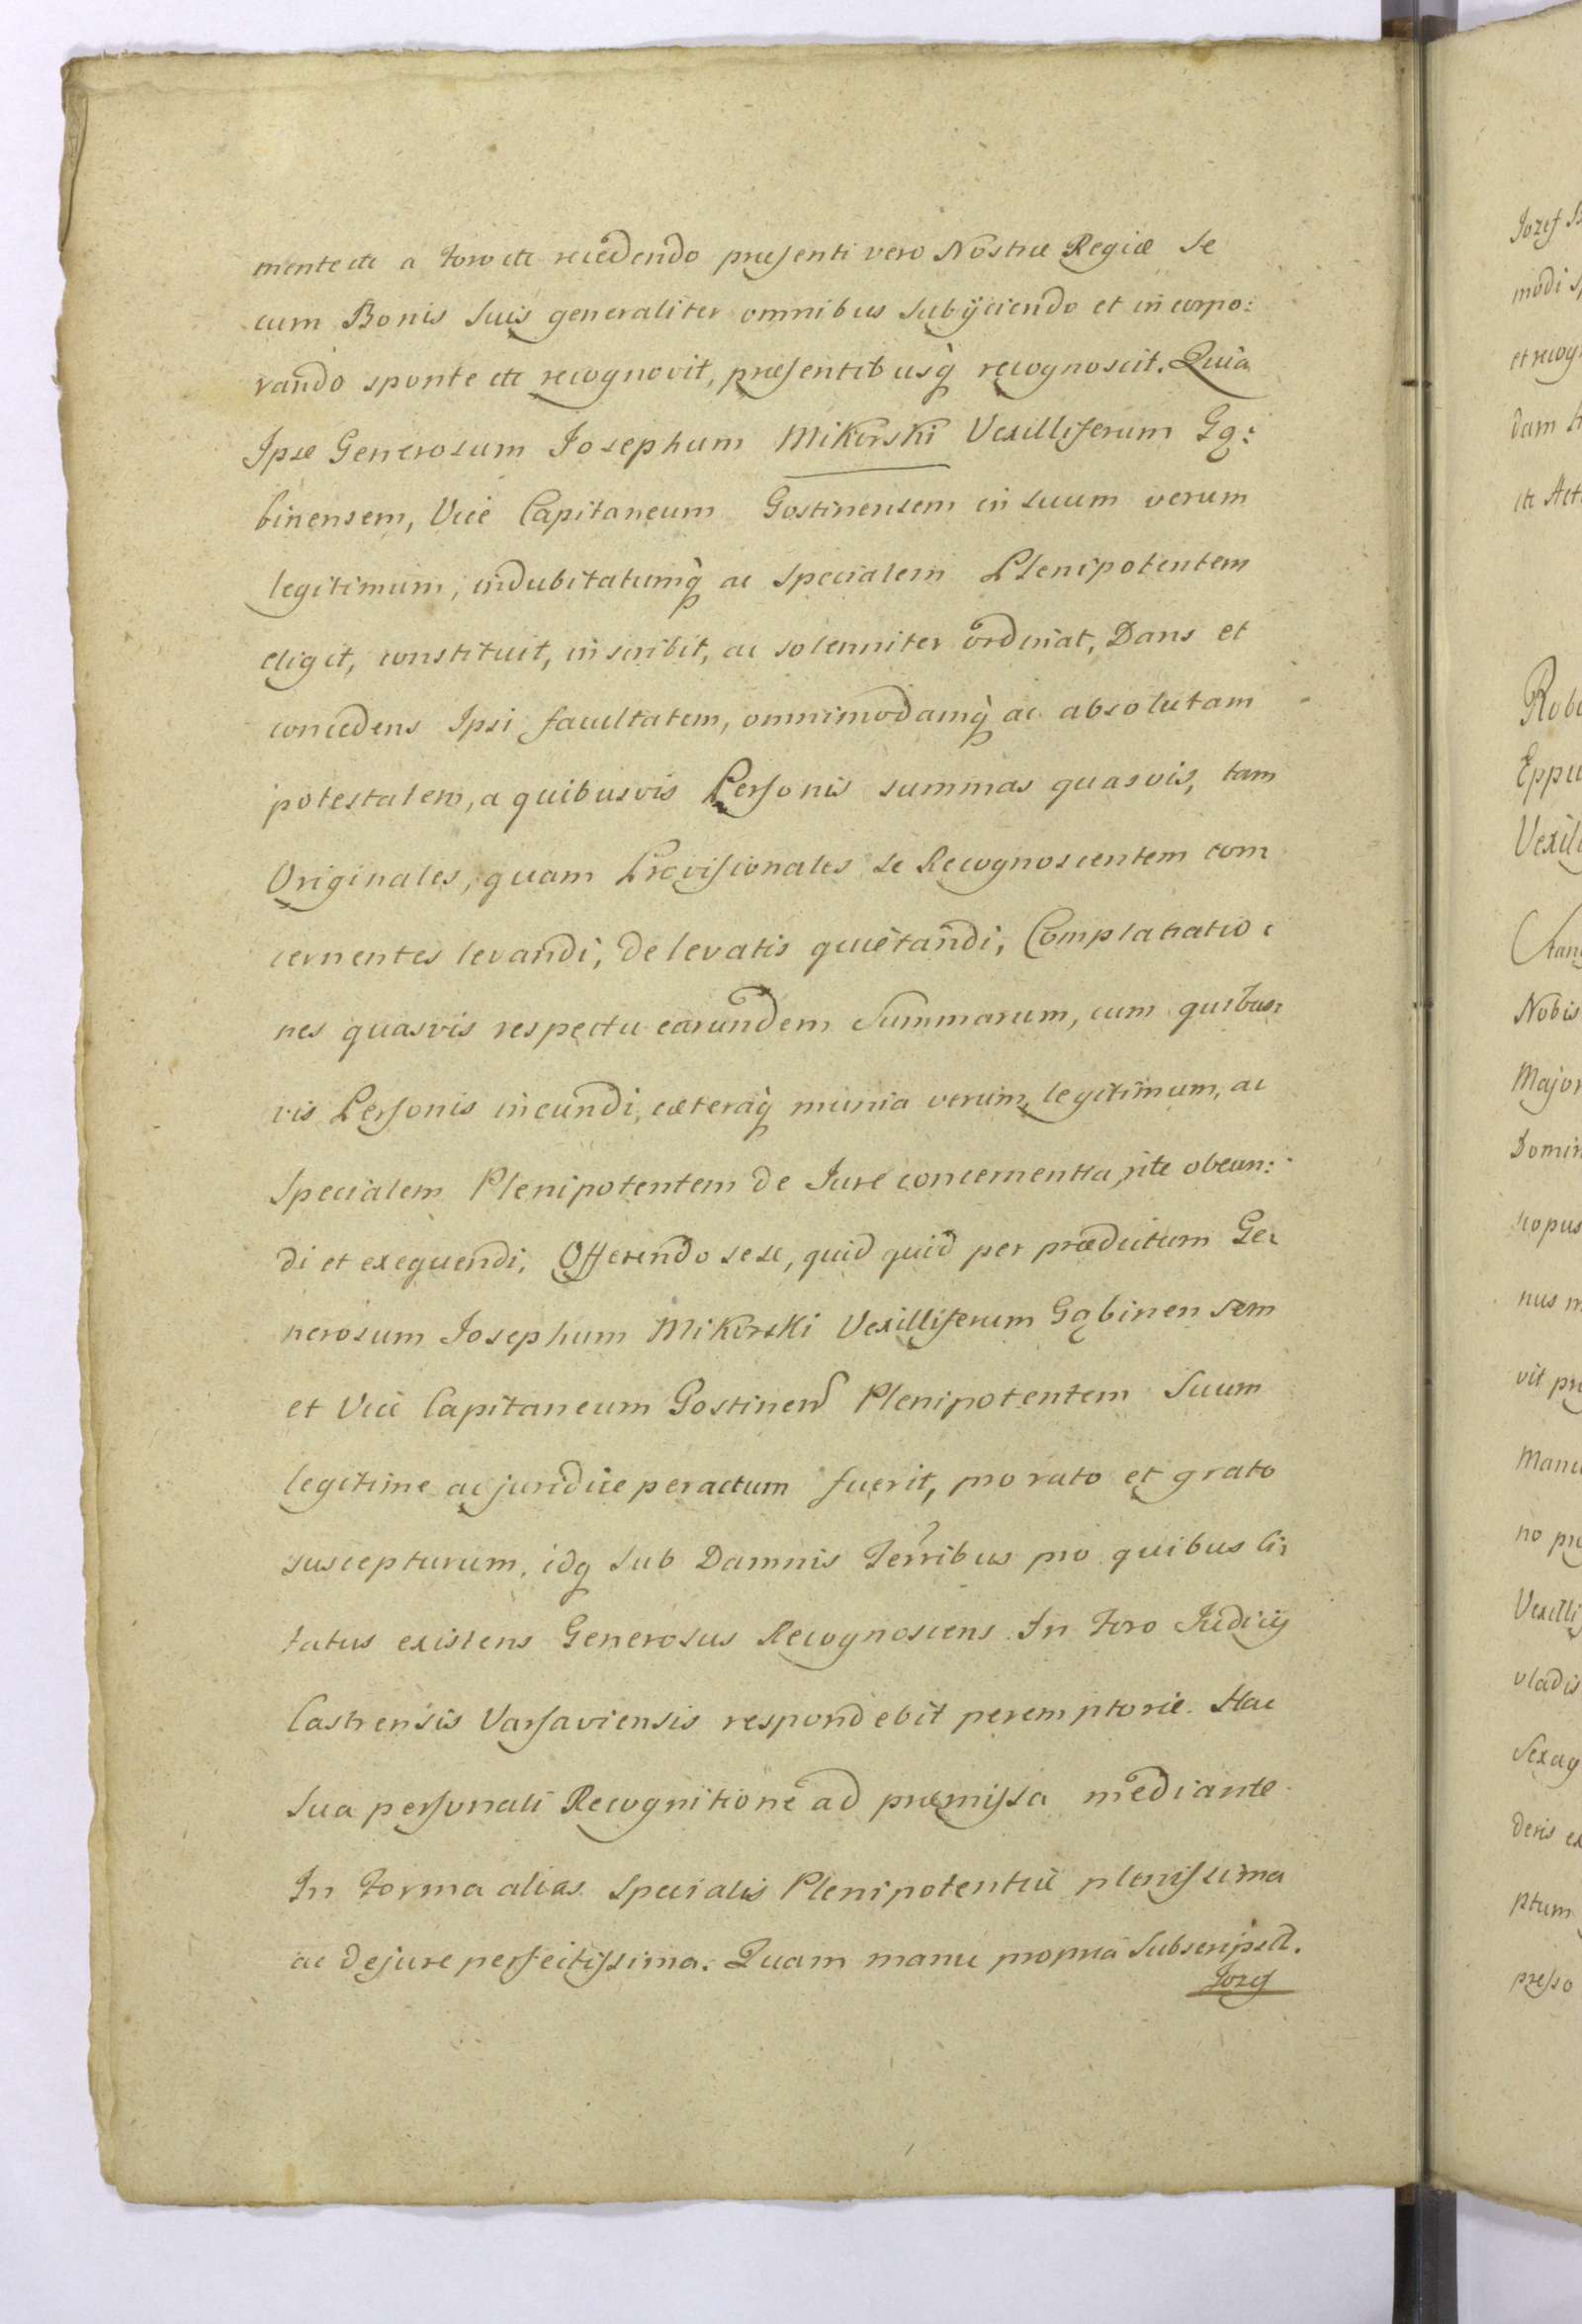 mente etc a Foro etc recedendo presenti vero Nostræ Regiæ Se
cum Bonis Suis generaliter omnibus Subÿciendo et incorpo:
rando sponte etc recognovit, præsentibusq̀ recognoscit. Quia
Ipse Generosum Josephum Mikorski Vexilliferum Gą:
binensem, Vice Capitaneum Gostinensem in suum verum
legitimum, indubitatumq̀ ac Specialem Plenipotentem
eligit, constituit, inscribit, ac solenniter ordinat, Dans et
concedens Ipsi facultatem, omnimodamq̀ ac absolutam
potestatem, a quibusvis Personis summas quasvis, tam
Originales, quam Provisionales se Recognoscentem con:
cernentes levandi, de levatis quiètandi, Complanatio:
nes quasvis respectu earundem Summarum, cum quibus:
vis Personis ineundi, cæteraq̀ munia verum, legitimum, ac
Specialem Plenipotentem de Jure concernentia, rite obeun:
di et exequendi, Offerendo sese, quid quid per prædictum Ge:
nerosum Josephum Mikorski Vexilliferum Gąbinensem
et Vice Capitaneum Gostinen Plenipotentem Suum
legitime ac juridice peractum fuerit, pro rato et grato
suscepturum, idq Sub Damnis Terribus pro quibus ci:
tatus existens Generosus Recognoscens In Foro Judicÿ
Castrensis Varsaviensis respondebit peremptorie. Hac
Sua personali Recognitione ad præmissa mediante
In Forma alias Specialis Plenipotentiæ plenissima
ac de jure perfectissima. Quam manu propria Subscripsit.
Jozef
Jozef
modi
et recog
dam
etc Act
Robe
Eppu
Vexil
Nobis
Major
Domin
copus
nus m
vit pr
Manu
no pr
Vexilli
vladis
Sexag
deris ex
ptum
presso